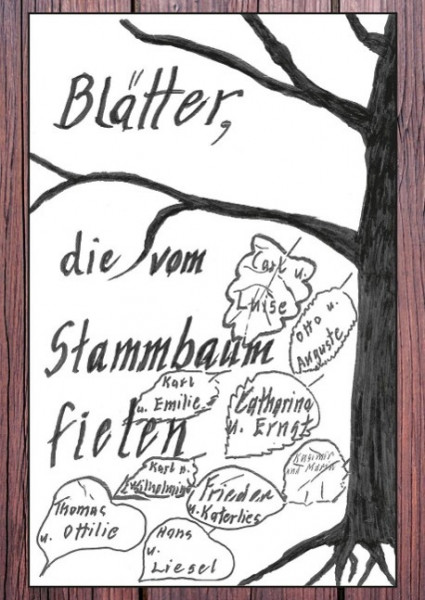 Blätter,
die vom
Stammbaum
fielen
Carl u.
Luise
Otto u.
Auguste
Karl
u. Emilie
Catharina
u. Ernst
Karl u.
Frieder
u. Katerlies
Kasimir
und
Thomas
u. Ottilie
Hans
u.
Liesel